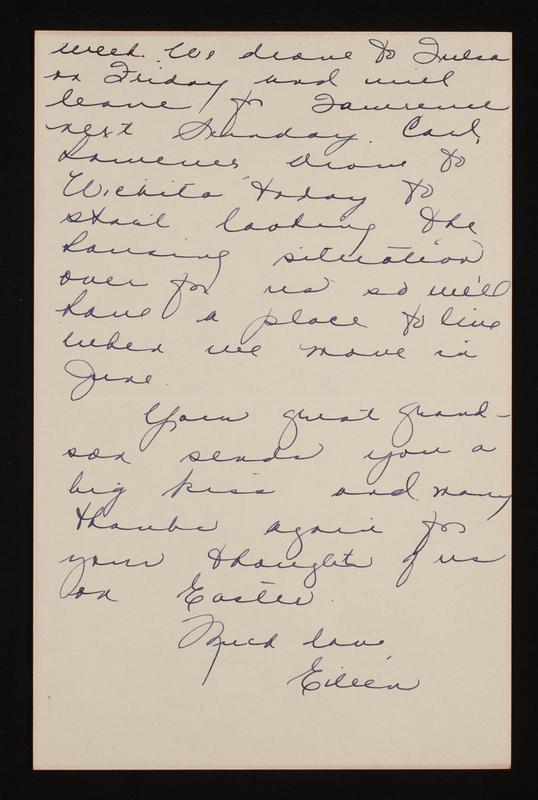 week. We drove to Tulsa
on Friday and will
leave for Lawrence
next Sunday. Carl,
however, drove to
Wichita today to
start looking the
housing situation
over for us so we'll
have a place to live
when we move in
June.
Your great grand-
son sends you a
big kiss and many
thanks again for
your thoughts of us
on Easter.
Much love,
Eileen